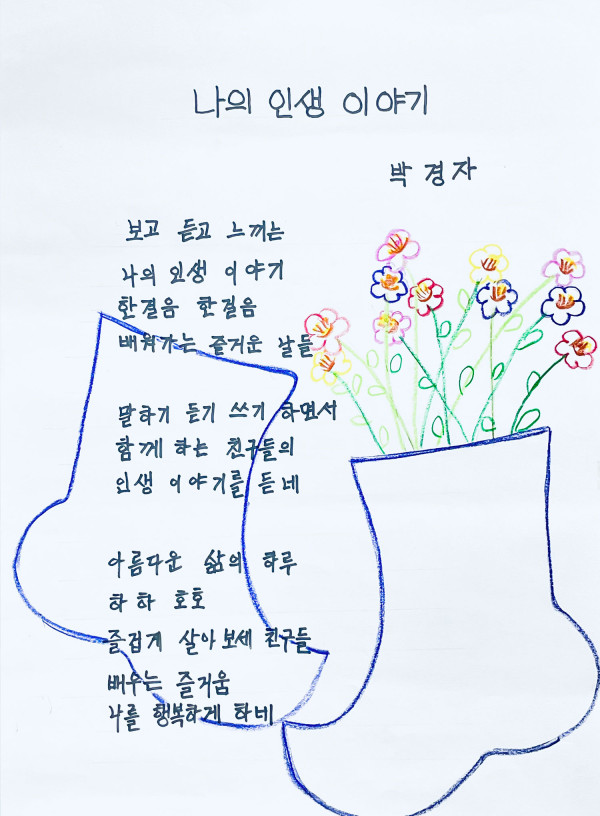 나의 인생 이야기
박경자
보고 듣고 느끼는
나의 인생 이야기
한걸음 한걸음
배워가는 즐거운 날들
말하기 듣기 쓰기 하면서
함께 하는 친구들의
인생 이야기를 듣네
아름다운 삶의 하루
하하 호호
즐겁게 살아보세 친구들
배우는 즐거움
나를 행복하게 하네